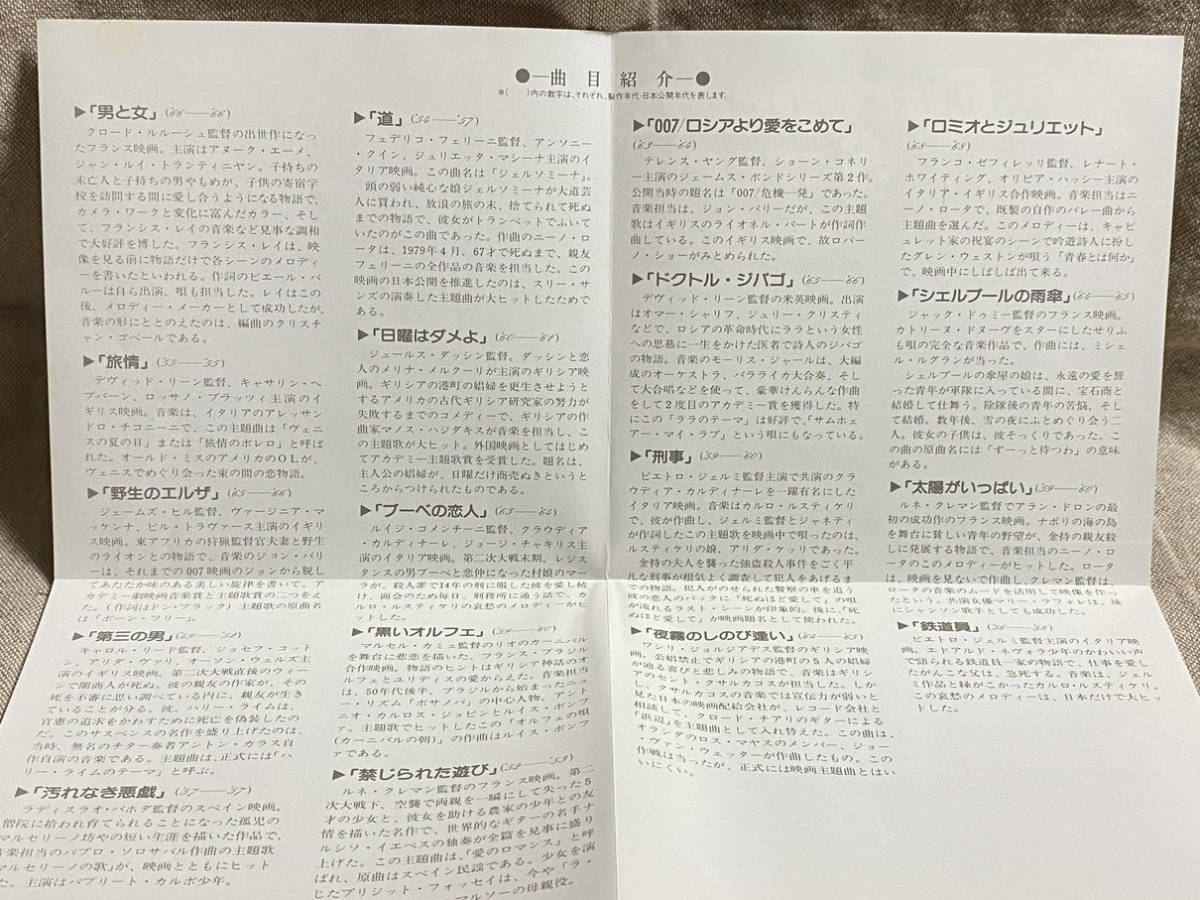 ●—曲目紹介—●
※( )内の数字は、それぞれ、製作年代・日本公開年代を表します。
▶「男と女」('66——'66)
クロード・ルルーシュ監督の出世作になっ
たフランス映画。主演はアヌーク・エーメ、
ジャン・ルイ・トランティニヤン。子持ちの
未亡人と子持ちの男やもめが、子供の寄宿学
校を訪問する間に愛し合うようになる物語で、
カメラ・ワークと変化に富んだカラー、そし
て、フランシス・レイの音楽など見事な調和
で大好評を博した。フランシス・レイは、映
像を見る前に物語だけで各シーンのメロディ
ーを書いたといわれる。作詞のピエール・バ
ルーは自ら出演、唄も担当した。レイはこの
後、メロディー・メーカーとして成功したが、
音楽の形にととのえたのは、編曲のクリスチ
ャン・ゴベールである。
▶「旅情」('55——'55)
デヴィッド・リーン監督、キャサリン・ヘ
プバーン、ロッサノ・ブラッツィ主演のイ
ギリス映画。音楽は、イタリアのアレッサン
ドロ・チコニーニで、この主題曲は「ヴェニ
スの夏の日」または「旅情のボレロ」と呼ば
れた。オールド・ミスのアメリカのOLが、
ヴェニスでめぐり会った束の間の恋物語。
▶「野生のエルザ」('65——'66)
ジェームズ・ヒル監督、ヴァージニア・マ
ッケンナ、ビル・トラヴァース主演のイギリ
ス映画。東アフリカの狩猟監督官夫妻と野生
のライオンとの物語で、音楽のジョン・バリ
ーは、それまでの007映画のジョンから脱し
てあたたか味のある美しい旋律を書いて、ア
カデミー劇映画音楽賞と主題歌賞の二つをえ
た。(作詞はドン・ブラック)主題歌の原曲名
は「ボーン・フリー」。
▶「第三の男」('49——'52)
キャロル・リード監督、ジョセフ・コット
ン、アリダ・ヴァリ、オーソン・ウェルズ主
演のイギリス映画。第二次大戦直後のウィー
ンで闇商人が死ぬ。彼の親友の作家が、その
死を不審に思い調べている内に、親友が生き
ていることが分る。彼、ハリー・ライムは、
官憲の追求をかわすために死亡を偽装したの
だ。このサスペンスの名作を盛り上げたのは、
当時、無名のチター奏者アントン・カラス自
作自演の音楽である。主題曲は、正式には「ハ
リー・ライムのテーマ」と呼ぶ。
▶「汚れなき悪戯」('57——'57)
ラディスラオ・バホダ監督のスペイン映画。
僧院に拾われ育てられることになった孤児の
マルセリーノ坊やの短い生涯を描いた作品で、
音楽担当のパブロ・ソロサバル作曲の主題歌
マルセリーノの歌」が、映画とともにヒット
た。主演はパブリート・カルボ少年。
▶「道」('54——'57)
フェデリコ・フェリーニ監督、アンソニー
・クイン、ジュリエッタ・マシーナ主演のイ
タリア映画。この曲名は「ジェルソミーナ」。
頭の弱い純心な娘ジェルソミーナが大道芸
人に買われ、放浪の旅の末、捨てられて死ぬ
までの物語で、彼女がトランペットでふいて
いたのがこの曲であった。作曲のニーノ・ロ
ータは、1979年4月、67才で死ぬまで、親友
フェリーニの全作品の音楽を担当した。この
映画の日本公開を推進したのは、スリー・サ
ンズの演奏した主題曲が大ヒットしたためで
ある。
▶「日曜はダメよ」('60——'61)
ジュールス・ダッシン監督。ダッシンと恋
人のメリナ・メルクーリが主演のギリシア映
画。ギリシアの港町の娼婦を更生させようと
するアメリカの古代ギリシア研究家の努力が
失敗するまでのコメディーで、ギリシアの作
曲家マノス・ハジダキスが音楽を担当し、こ
の主題歌が大ヒット。外国映画としてはじめ
てアカデミー主題歌賞を受賞した。題名は、
主人公の娼婦が、日曜だけ商売ぬきというと
ころからつけられたものである。
▶「ブーベの恋人」('63——'64)
ルイジ・コメンチーニ監督、クラウディア
・カルディナーレ、ジョージ・チャキリス主
演のイタリア映画。第二次大戦末期、レジス
タンスの男ブーベと恋仲になった村娘のマー
ラが、殺人罪で14年の刑に服した彼を愛し続
け、面会のため毎日、刑務所に通う話で、カ
ルロ・ルスティケリの哀愁のメロディーがヒ
ットした。
▶「黒いオルフェ」('59——'60)
マルセル・カミュ監督のリオのカーニバル
を舞台に悲恋を描いた、フランス・ブラジル
合作映画。物語のヒントはギリシア神話のオ
ルフェとユリディスの愛からえた。音楽担当
は、50年代後半、ブラジルから始まったニュ
ー・リズム「ボサノバ」の中心人物、アント
ニオ・カルロス・ジョビンとルイス・ボンフ
ァ。主題歌でヒットしたこの「オルフェの唄
(カーニバルの朝)」の作曲はルイス・ボンフ
ァである。
▶「禁じられた遊び」('52——'53)
ルネ・クレマン監督のフランス映画。第二
次大戦下、空襲で両親を一瞬にして失った5
才の少女と、彼女を助ける農家の少年との友
情を描いた名作で、世界的なギターの名手ナ
ルシソ・イエペスの独奏が全篇を見事に盛り
上げた。この主題曲は、「愛のロマンス」と呼
ばれ、原曲はスペイン民謡である。少女を演
じたブリジット・フォッセイは、今や「ラ・
マルソーの母親役。
▶「007/ロシアより愛をこめて」
('63——'64)
テレンス・ヤング監督、ショーン・コネリ
ー主演のジェームス・ボンドシリーズ第2作。
公開当時の題名は「007/危機一発」であった。
音楽担当は、ジョン・バリーだが、この主題
歌はイギリスのライオネル・バートが作詞作
曲している。このイギリス映画で、故ロバー
ト・ショーがみとめられた。
▶「ドクトル・ジバゴ」('65——'66)
デヴィッド・リーン監督の米英映画。出演
はオマー・シャリフ、ジュリー・クリスティ
などで、ロシアの革命時代にララという女性
への思慕に一生をかけた医者で詩人のジバゴ
の物語。音楽のモーリス・ジャールは、大編
成のオーケストラ、バラライカ大合奏、そし
て大合唱などを使って、豪華けんらんな作曲
をして2度目のアカデミー賞を獲得した。特
にこの「ララのテーマ」は好評で、「サムホェ
アー・マイ・ラブ」という唄にもなっている。
▶「刑事」('59——'60)
ピエトロ・ジェルミ監督主演で共演のクラ
ウディア・カルディナーレを一躍有名にした
イタリア映画。音楽はカルロ・ルスティケリ
で、彼が作曲し、ジェルミ監督とジャネティ
が作詞したこの主題歌を映画中で唄ったのは、
ルスティケリの娘、アリダ・ケッリであった。
金持の夫人を襲った強盗殺人事件をごく平
凡な刑事が根気よく調査して犯人をあげるま
での物語。犯人がのせられた警察の車を追う
彼の恋人のバックに「死ぬほど愛して」の唄
が流れるラスト・シーンが印象的。後に、「死
ぬほど愛して」が映画題名として使われた。
▶「夜霧のしのび逢い」('64——'65)
ワシリ・ジョルジアデス監督のギリシア映
画。公娼禁止でギリシアの港町の5人の娼婦
が辿る喜びと悲しみの物語で、音楽はギリシ
アのセント・クサルカコスが担当した。しか
し、クサルカコスの音楽では宣伝力が弱いと
見た日本の映画配給会社が、レコード会社と
相談して、クロード・チアリのギターによる
「浜辺」を主題曲として入れ替えた。この曲は、
オランダのロス・マヤスのメンバー、ジョー
・ヴァン・ウェッターが作曲したもの。この
作戦は当ったが、正式には映画主題曲とはい
いにくい。
▶「ロミオとジュリエット」
('68——'68)
フランコ・ゼフィレッリ監督、レナート・
ホワイティング、オリビア・ハッシー主演の
イタリア・イギリス合作映画。音楽担当はニ
ーノ・ロータで、既製の自作のバレー曲から
主題曲を選んだ。このメロディーは、キャピ
ュレット家の祝宴のシーンで吟遊詩人に扮し
たグレン・ウェストンが唄う「青春とは何か」
で、映画中にしばしば出て来る。
▶「シェルブールの雨傘」('64——'65)
ジャック・ドゥミー監督のフランス映画。
カトリーヌ・ドヌーヴをスターにしたせりふ
も唄の完全な音楽作品で、作曲には、ミシェ
ル・ルグランが当った。
シェルブールの傘屋の娘は、永遠の愛を誓
った青年が軍隊に入っている間に、宝石商と
結婚して仕舞う。除隊後の青年の苦悩、そし
て結婚。数年後、雪の夜にふとめぐり会う二
人。彼女の子供は、彼そっくりであった。こ
の曲の原曲名には「ずーっと待つわ」の意味
がある。
▶「太陽がいっぱい」('59——'60)
ルネ・クレマン監督でアラン・ドロンの最
初の成功作のフランス映画。ナポリの海の島
を舞台に貧しい青年の野望が、金持の親友殺
しに発展する物語で、音楽担当のニーノ・ロ
ータのこのメロディーがヒットした。ロータ
は、映画を見ないで作曲し、クレマン監督は、
ロータの音楽のムードを活用して映像を作っ
たという。共演女優マリー・ラフォレは、後
にシャンソン歌手としても成功した。
▶「鉄道員」('56——'58)
ピエトロ・ジェルミ監督主演のイタリア映
画。エドアルド・ネヴォラ少年のかわいい声
で語られる鉄道員一家の物語で、仕事を愛し
たがんこな父は、急死する。音楽は、ジェル
ミ作品と縁がこかったカルロ・ルスティケリ。
この哀愁のメロディーは、日本だけで大ヒッ
トした。